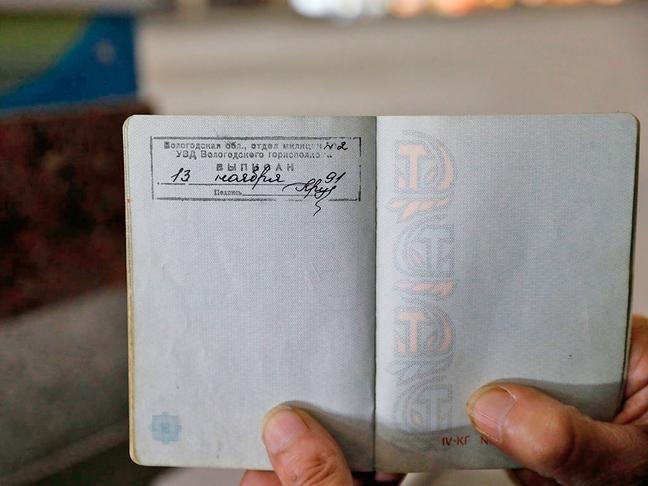 Вологодская обл., отдел милиции №2
УВД Вологодского горисполкома
ВЫПИСАН
13 ноября 91
Подпись
IV-КГ N